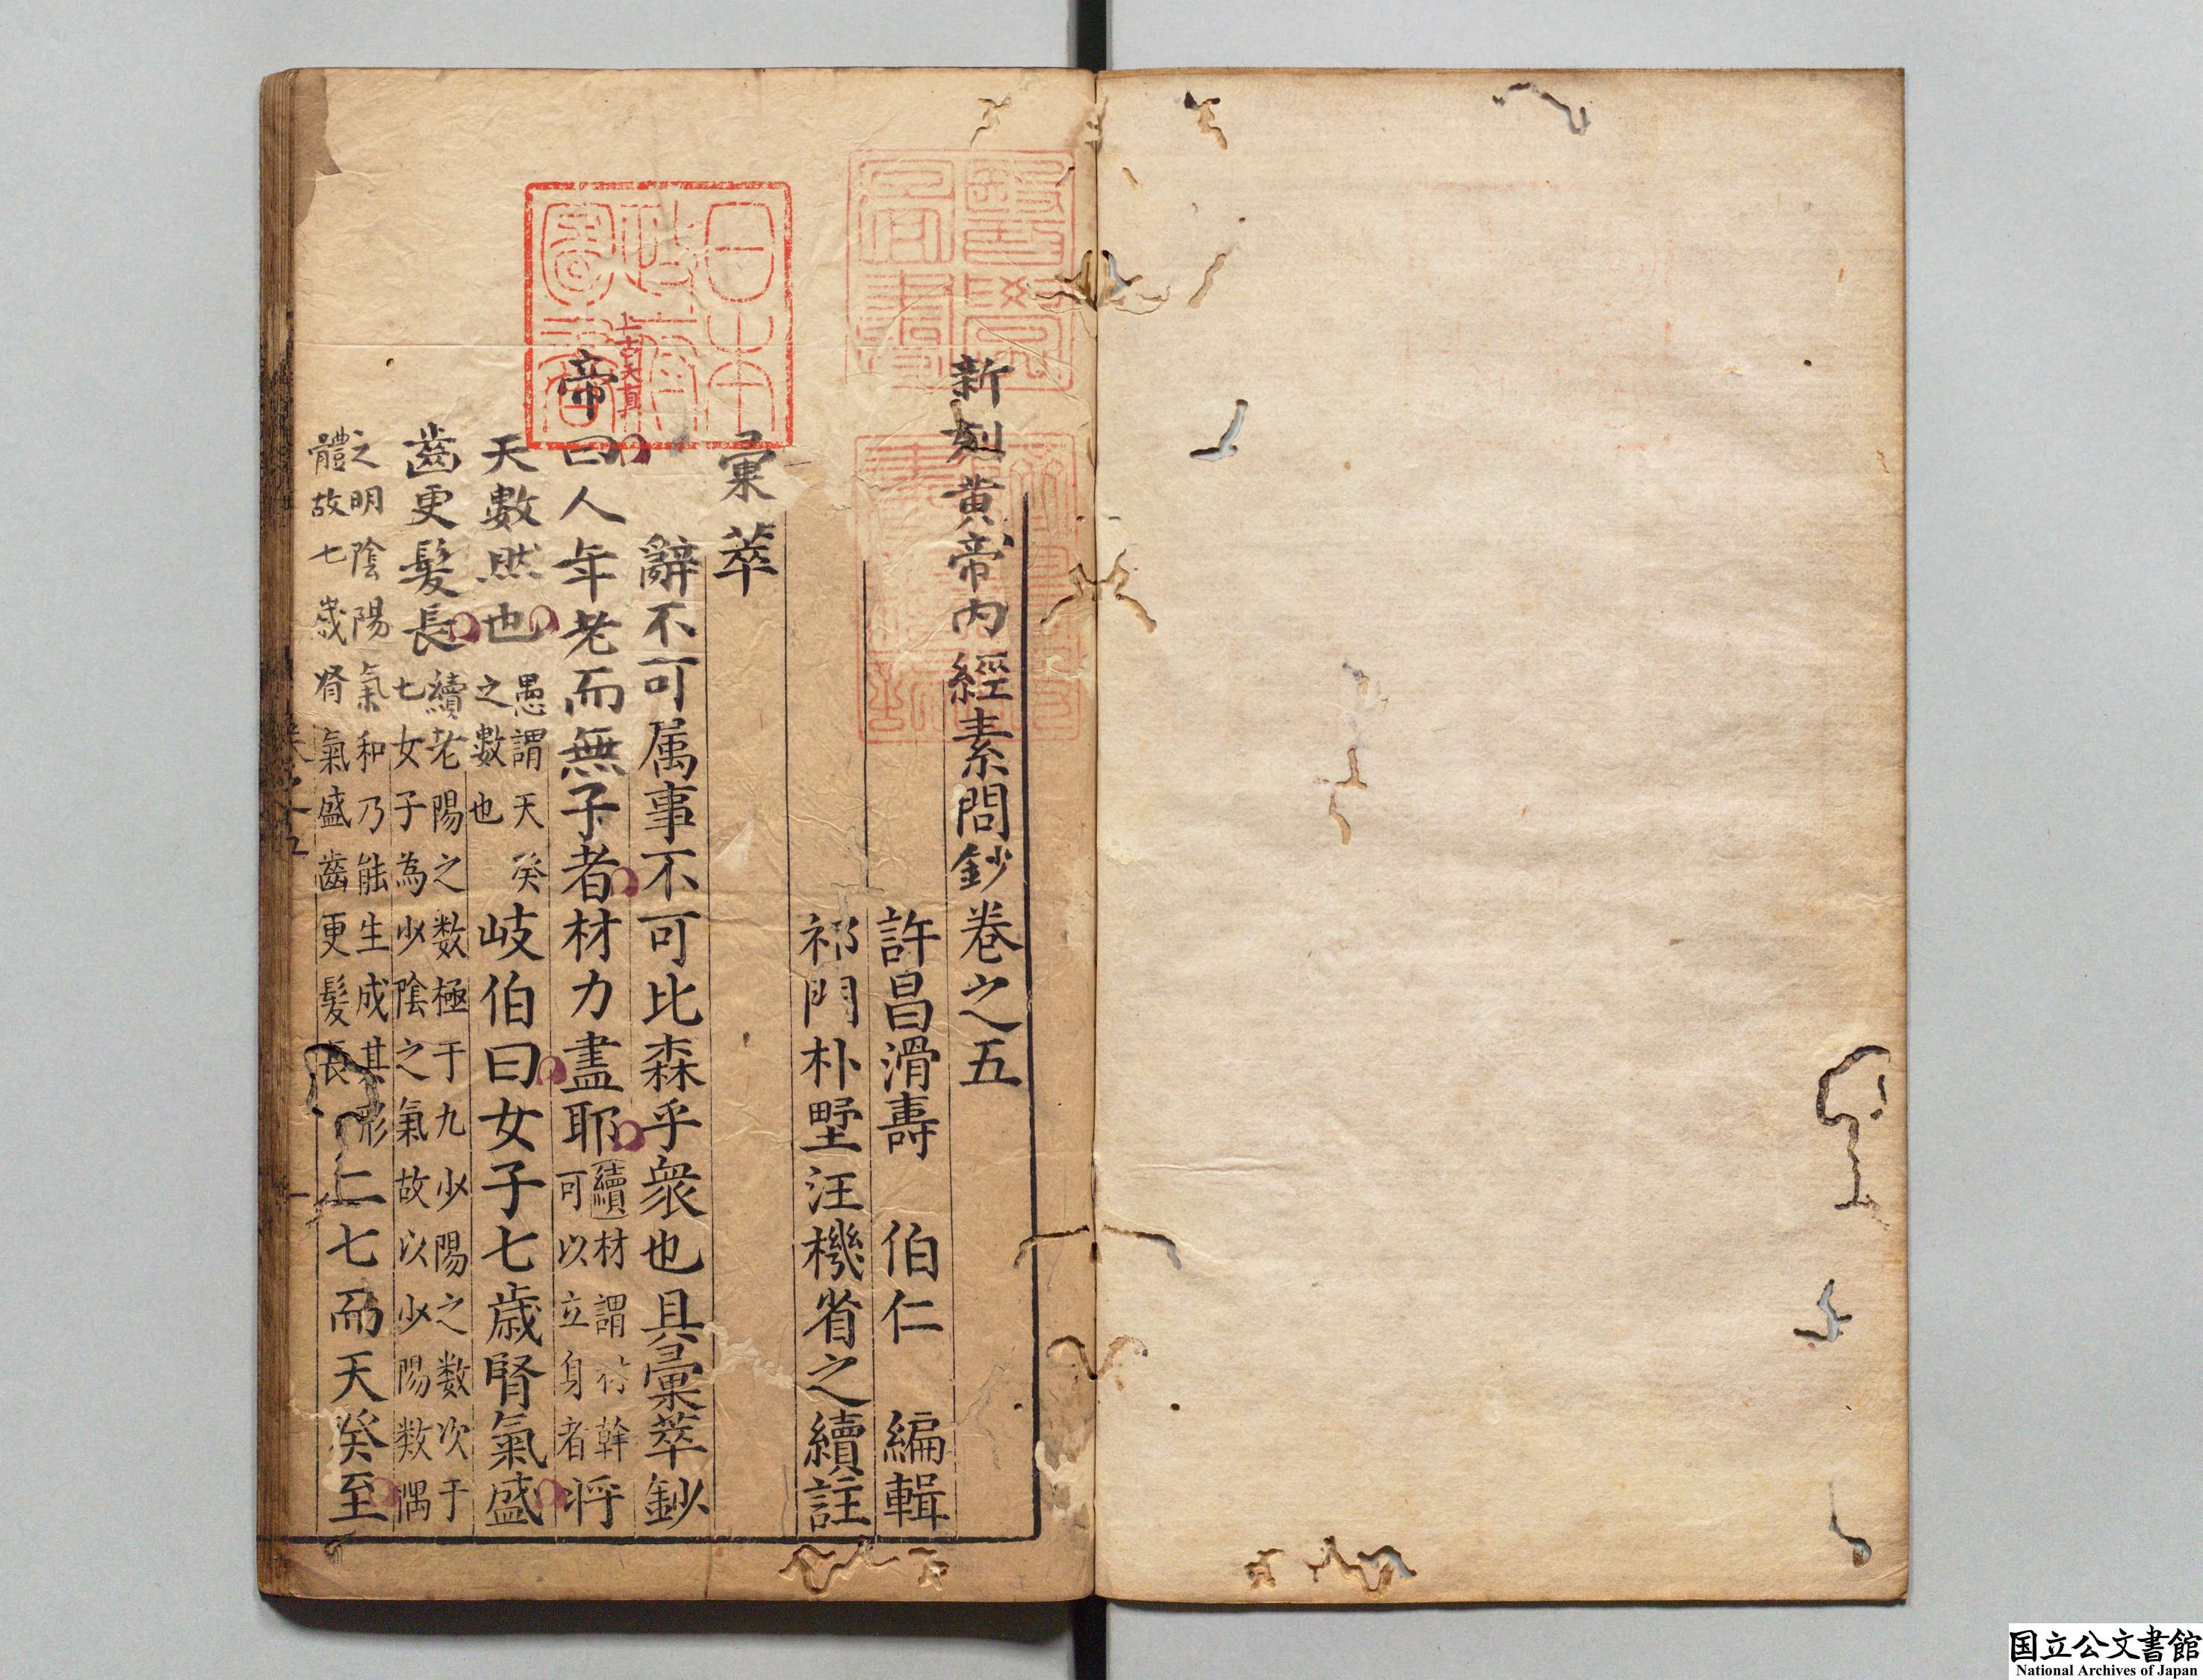 新刻黄帝內經素問鈔卷之五
許昌滑壽 伯仁 編輯
祁門朴墅汪機省之續註
彙萃
辭不可属事不可比森乎衆也具彙萃鈔
上古天真
帝曰人年老而無子者材力盡耶續材謂材幹可以立身者將
天數然也愚謂天癸之數也岐伯曰女子七歳腎氣盛
齒更髮長續老陽之数極于九少陽之数次于七女子為少陰之氣故以少陽数偶
之明陰陽氣和乃能生成其形體故七歳腎氣盛齒更髮長二七而天癸至
日本政府圖書
醫學圖書
国立公文書館
National Archives of Japan